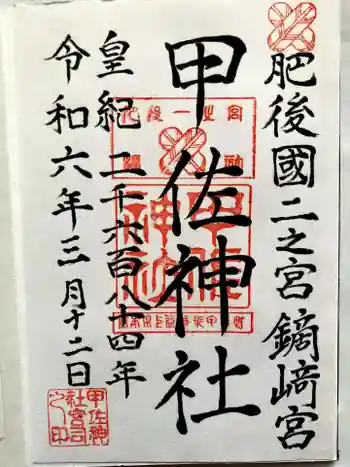 肥後國二之宮鏑﨑宮
甲佐神社
皇紀二千六百八十四年
令和六年三月十二日
甲佐神社
甲佐神社宮司之印